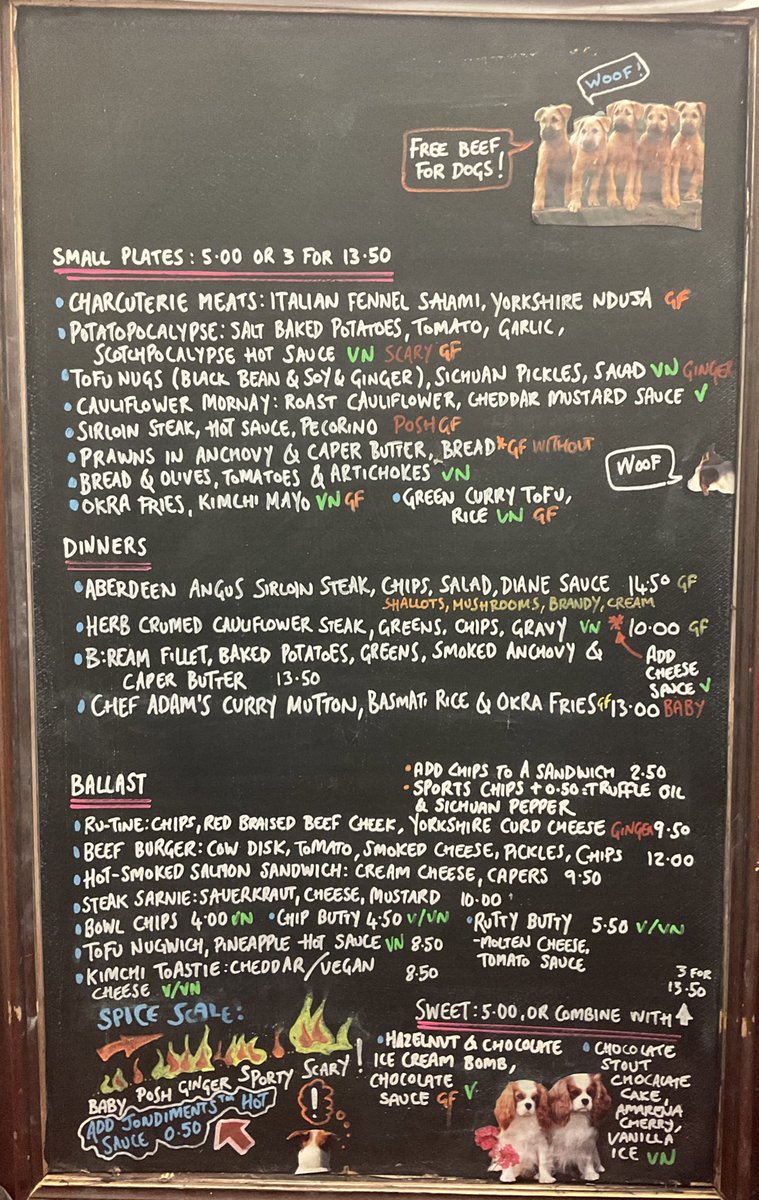 WOOF!
FREE BEEF
FOR DOGS!
SMALL PLATES: 5.00 OR 3 FOR 13.50
• CHARCUTERIE MEATS: ITALIAN FENNEL SALAMI, YORKSHIRE NDUJA GF
• POTATOPOCALYPSE: SALT BAKED POTATOES, TOMATO, GARLIC,
SCOTCHPOCALYPSE HOT SAUCE VN SCARY GF
• TOFU NUGS (BLACK BEAN & SOY & GINGER), SICHUAN PICKLES, SALAD VN GINGER
• CAULIFLOWER MORNAY: ROAST CAULIFLOWER, CHEDDAR MUSTARD SAUCE V
• SIRLOIN STEAK, HOT SAUCE, PECORINO POSH GF
• PRAWNS IN ANCHOVY & CAPER BUTTER, BREAD *GF WITHOUT
• BREAD & OLIVES, TOMATOES & ARTICHOKES VN
WOOF
• OKRA FRIES, KIMCHI MAYO VN GF • GREEN CURRY TOFU,
RICE VN GF
DINNERS
• ABERDEEN ANGUS SIRLOIN STEAK, CHIPS, SALAD, DIANE SAUCE 14.50 GF
SHALLOTS, MUSHROOMS, BRANDY, CREAM
• HERB CRUMED CAULIFLOWER STEAK, GREENS, CHIPS, GRAVY VN * 10.00 GF
ADD
CHEESE
SAUCE V
• B:REAM FILLET, BAKED POTATOES, GREENS, SMOKED ANCHOVY &
CAPER BUTTER 13.50
• CHEF ADAM'S CURRY MUTTON, BASMATI RICE & OKRA FRIES GF 13.00 BABY
BALLAST
• ADD CHIPS TO A SANDWICH 2.50
• SPORTS CHIPS + 0.50: TRUFFLE OIL
& SICHUAN PEPPER
• RU-TINE: CHIPS, RED BRAISED BEEF CHEEK, YORKSHIRE CURD CHEESE GINGER 9.50
• BEEF BURGER: COW DISK, TOMATO, SMOKED CHEESE, PICKLES, CHIPS 12.00
• HOT-SMOKED SALMON SANDWICH: CREAM CHEESE, CAPERS 9.50
• STEAK SARNIE: SAUERKRAUT, CHEESE, MUSTARD 10.00
• BOWL CHIPS 4.00 VN • CHIP BUTTY 4.50 V/VN
• RUTTY BUTTY 5.50 V/VN
- MOLTEN CHEESE,
TOMATO SAUCE
• TOFU NUGWICH, PINEAPPLE HOT SAUCE VN 8.50
• KIMCHI TOASTIE: CHEDDAR/VEGAN 8.50
CHEESE V/VN
3 FOR
13.50
SWEET: 5.00, OR COMBINE WITH
• HAZELNUT & CHOCOLATE
ICE CREAM BOMB,
CHOCOLATE
SAUCE GF V
• CHOCOLATE
STOUT
CHOCALATE
CAKE,
AMARENA
CHERRY,
VANILLA
ICE VN
SPICE SCALE:
BABY POSH GINGER SPORTY SCARY!
ADD JONDIMENTS™ HOT
SAUCE 0.50
!